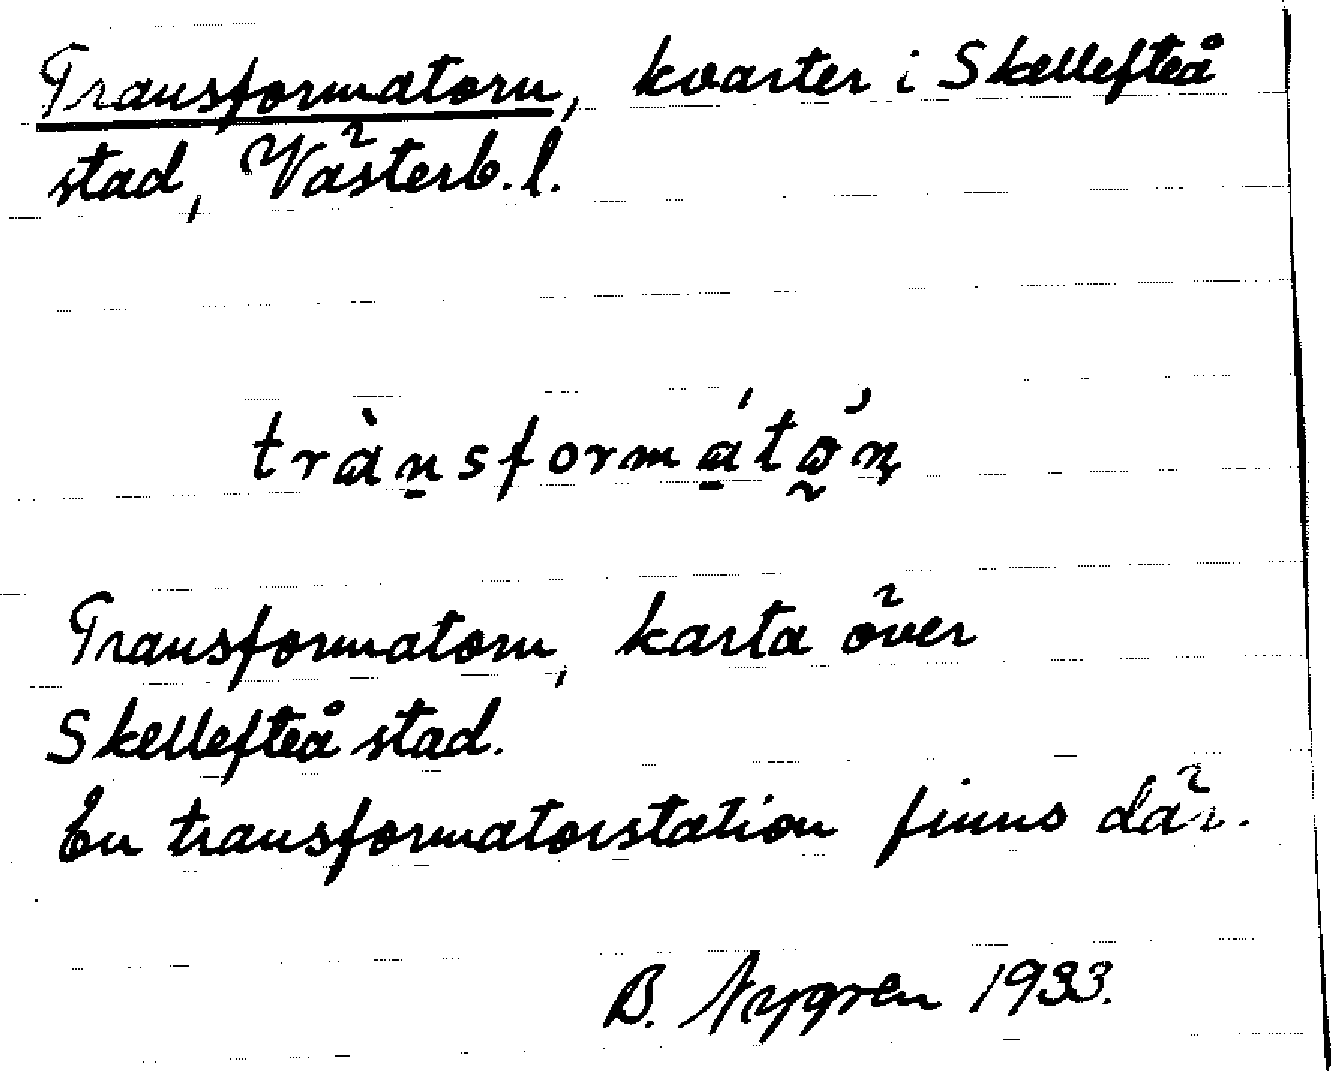 Transformatorn, kvarter i Skellefteå
stad, Västerb. l.
trànsformátǫ́n̨
Transformatorn, karta över
Skellefteå stad.
En transformatorstation finns där.
B. Nygren 1933.